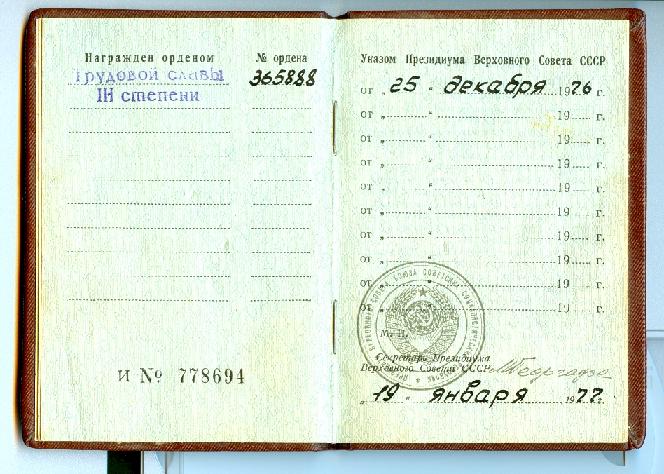 Награжден орденом № ордена
Трудовой славы 365888
III степени
И № 778694
Указом Президиума Верховного Совета СССР
от „ 25 “ декабря 1976 г.
от „ “ 19 г.
от „ “ 19 г.
от „ “ 19 г.
от „ “ 19 г.
от „ “ 19 г.
от „ “ 19 г.
от „ “ 19 г.
от „ “ 19 г.
от „ “ 19 г.
М. П.
Секретарь Президиума
Верховного Совета СССР
„ 19 “ января 1977 г.